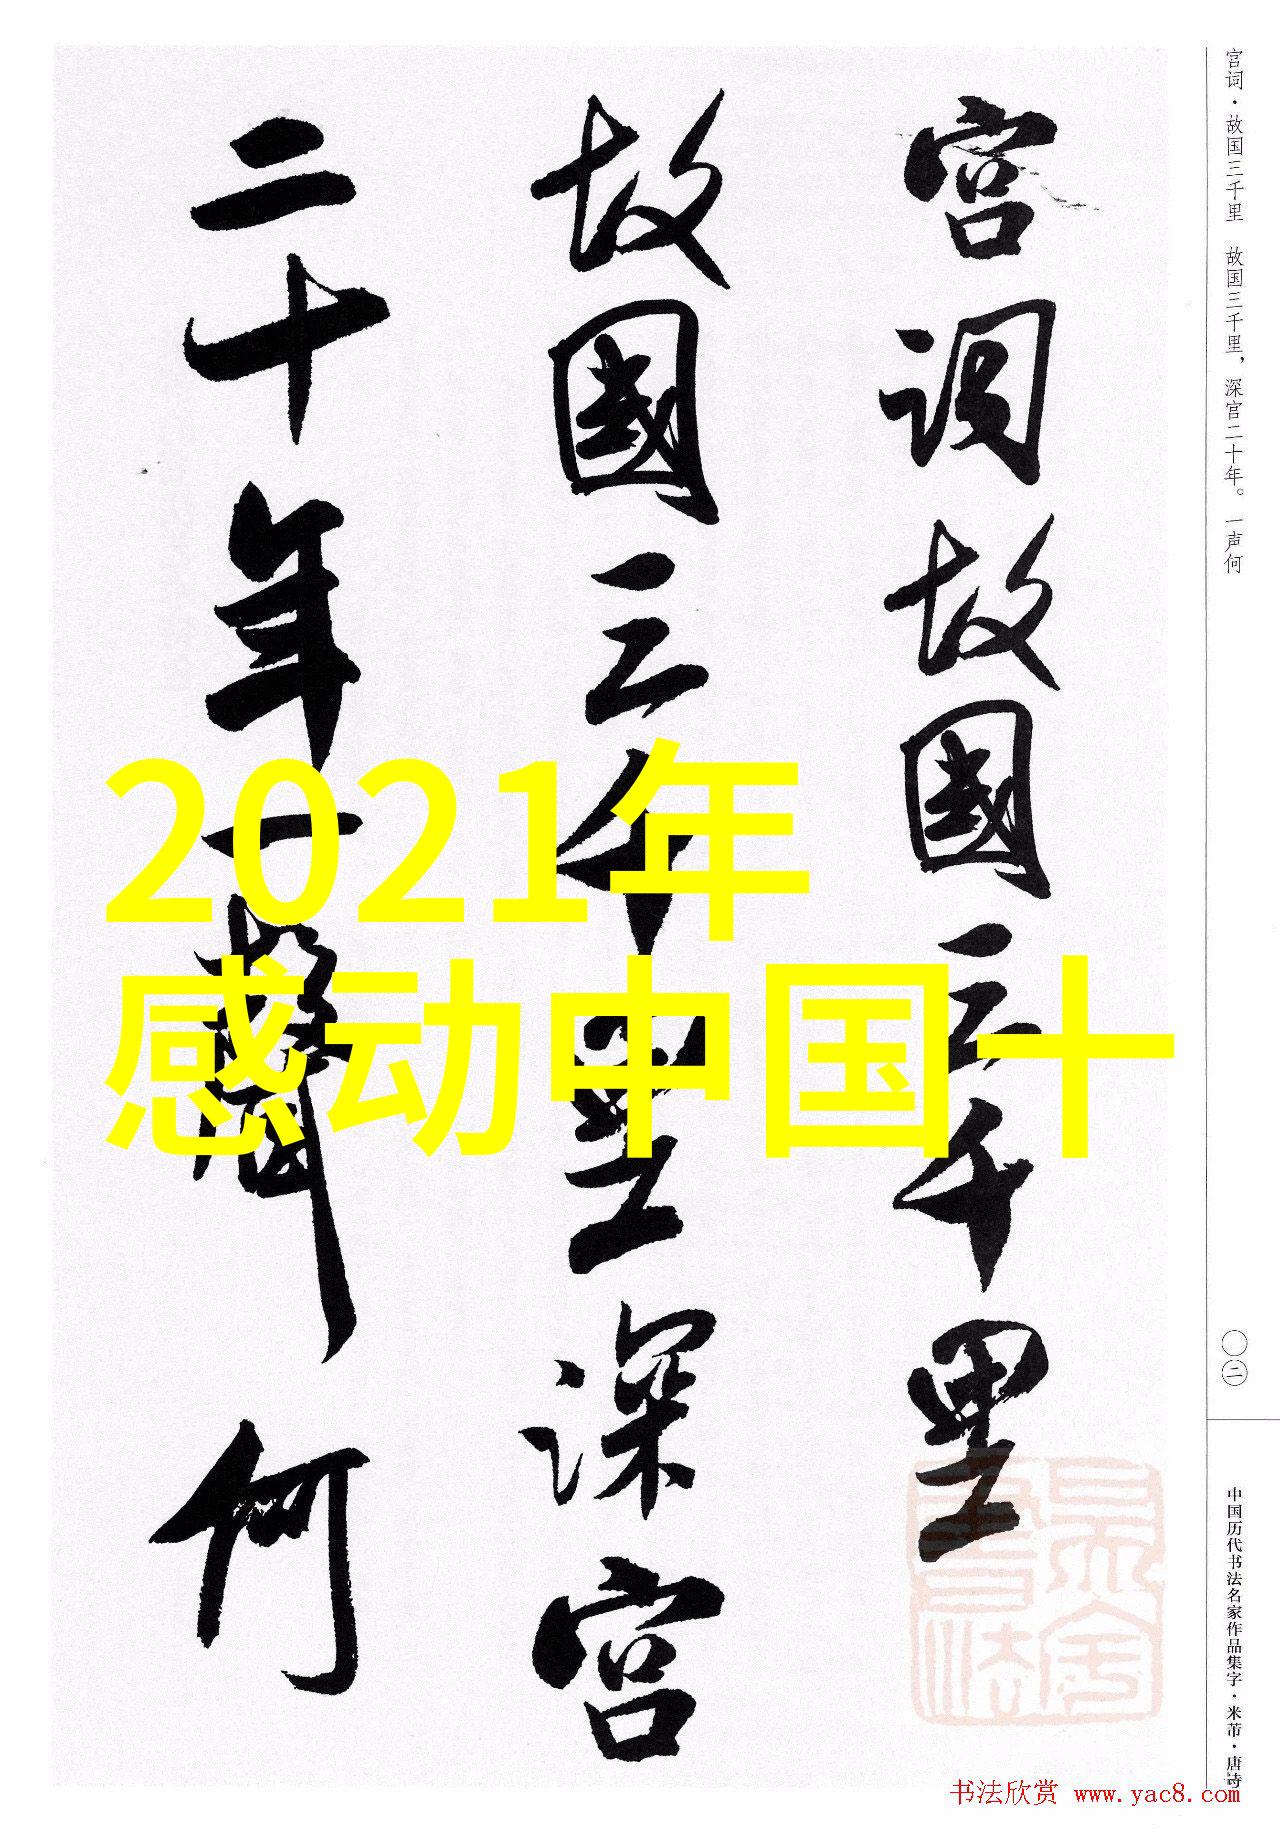 宫词故國三千里
故國三千里深宫
二十年一聲何
2021年
感动中国十
宫词·故国三千里 故国三千里，深宫二十年。一声何
〇二
中国历代书法名家作品集字·米芾·唐诗
书法欣赏 www.yac8.com